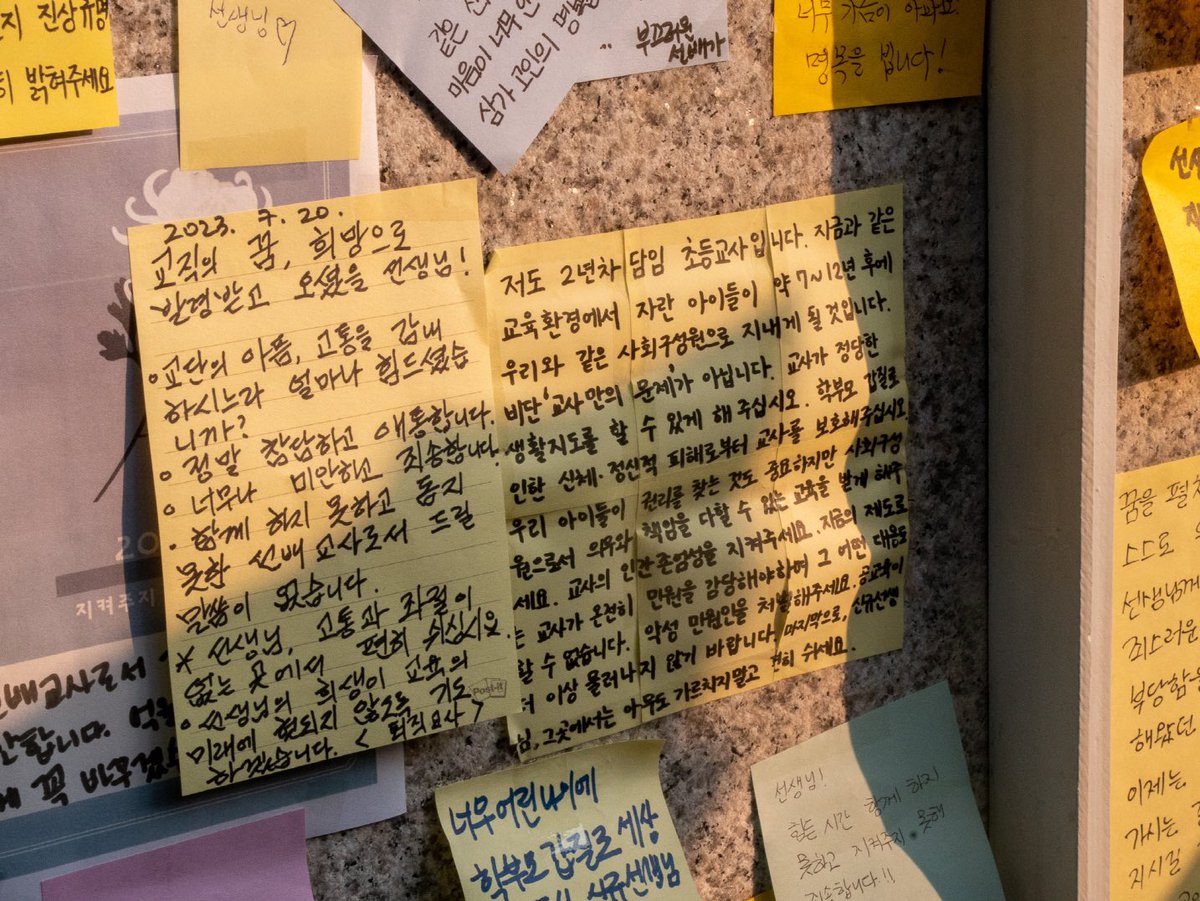 지 진상규명
히 밝혀주세요
선생님♡
젊은
마음이 너무
삼가 고인의 명복
부끄러운
선배가
너무 가슴이 아파요.
명복을 빕니다!
2023. 7. 20.
교직의 꿈, 희망으로
발령받고 오셨을 선생님!
교단의 아픔, 고통을 감내
하시느라 얼마나 힘드셨습
니까?
정말 참담하고 애통합니다.
너무나 미안하고 죄송합니다.
함께 하지 못하고 동지
못한 선배 교사로서 드릴
말씀이 없습니다.
* 선생님, 고통과 좌절이
없는 곳에서 편히 쉬십시요.
선생님의 희생이 교육의
미래에 헛되지 않도록 기도
하겠습니다. < 퇴직교사 >
Post-it
저도 2년차 담임 초등교사입니다. 지금과 같은
교육환경에서 자란 아이들이 약 7~12년 후에
우리와 같은 사회구성원으로 지내게 될 것입니다.
비단 '교사만의 문제'가 아닙니다. 교사가 정당한
생활지도를 할 수 있게 해 주십시오. 학부모 갑질로
인한 신체·정신적 피해로부터 교사를 보호해주십시오
우리 아이들이 권리를 찾는 것도 중요하지만 사회구성
원으로서 의무와 책임을 다할 수 있는 교육을 받게 해주
세요. 교사의 인간존엄성을 지켜주세요. 지금의 제도로
는 교사가 온전히 만원을 감당해야하며 그 어떤 대응도
할 수 없습니다. 악성 만원인을 처벌해주세요. 공교육이
더 이상 물러나지 않기 바랍니다. 마지막으로, 신규선생
님, 그곳에서는 아무도 가르치지말고 편히 쉬세요.
20
지켜주지
선배교사로서
합니다.
꼭 바꾸겠
너무 어린 나이에
학부모 갑질로 세상
신규선생님
선생님!
힘든 시간 함께 하지
못하고 지켜주지 못해
죄송합니다!!
선생
꿈을 펼치
스스로
선생님께
죄스러운
부당함
해왔던
이제는
가시는
지시길